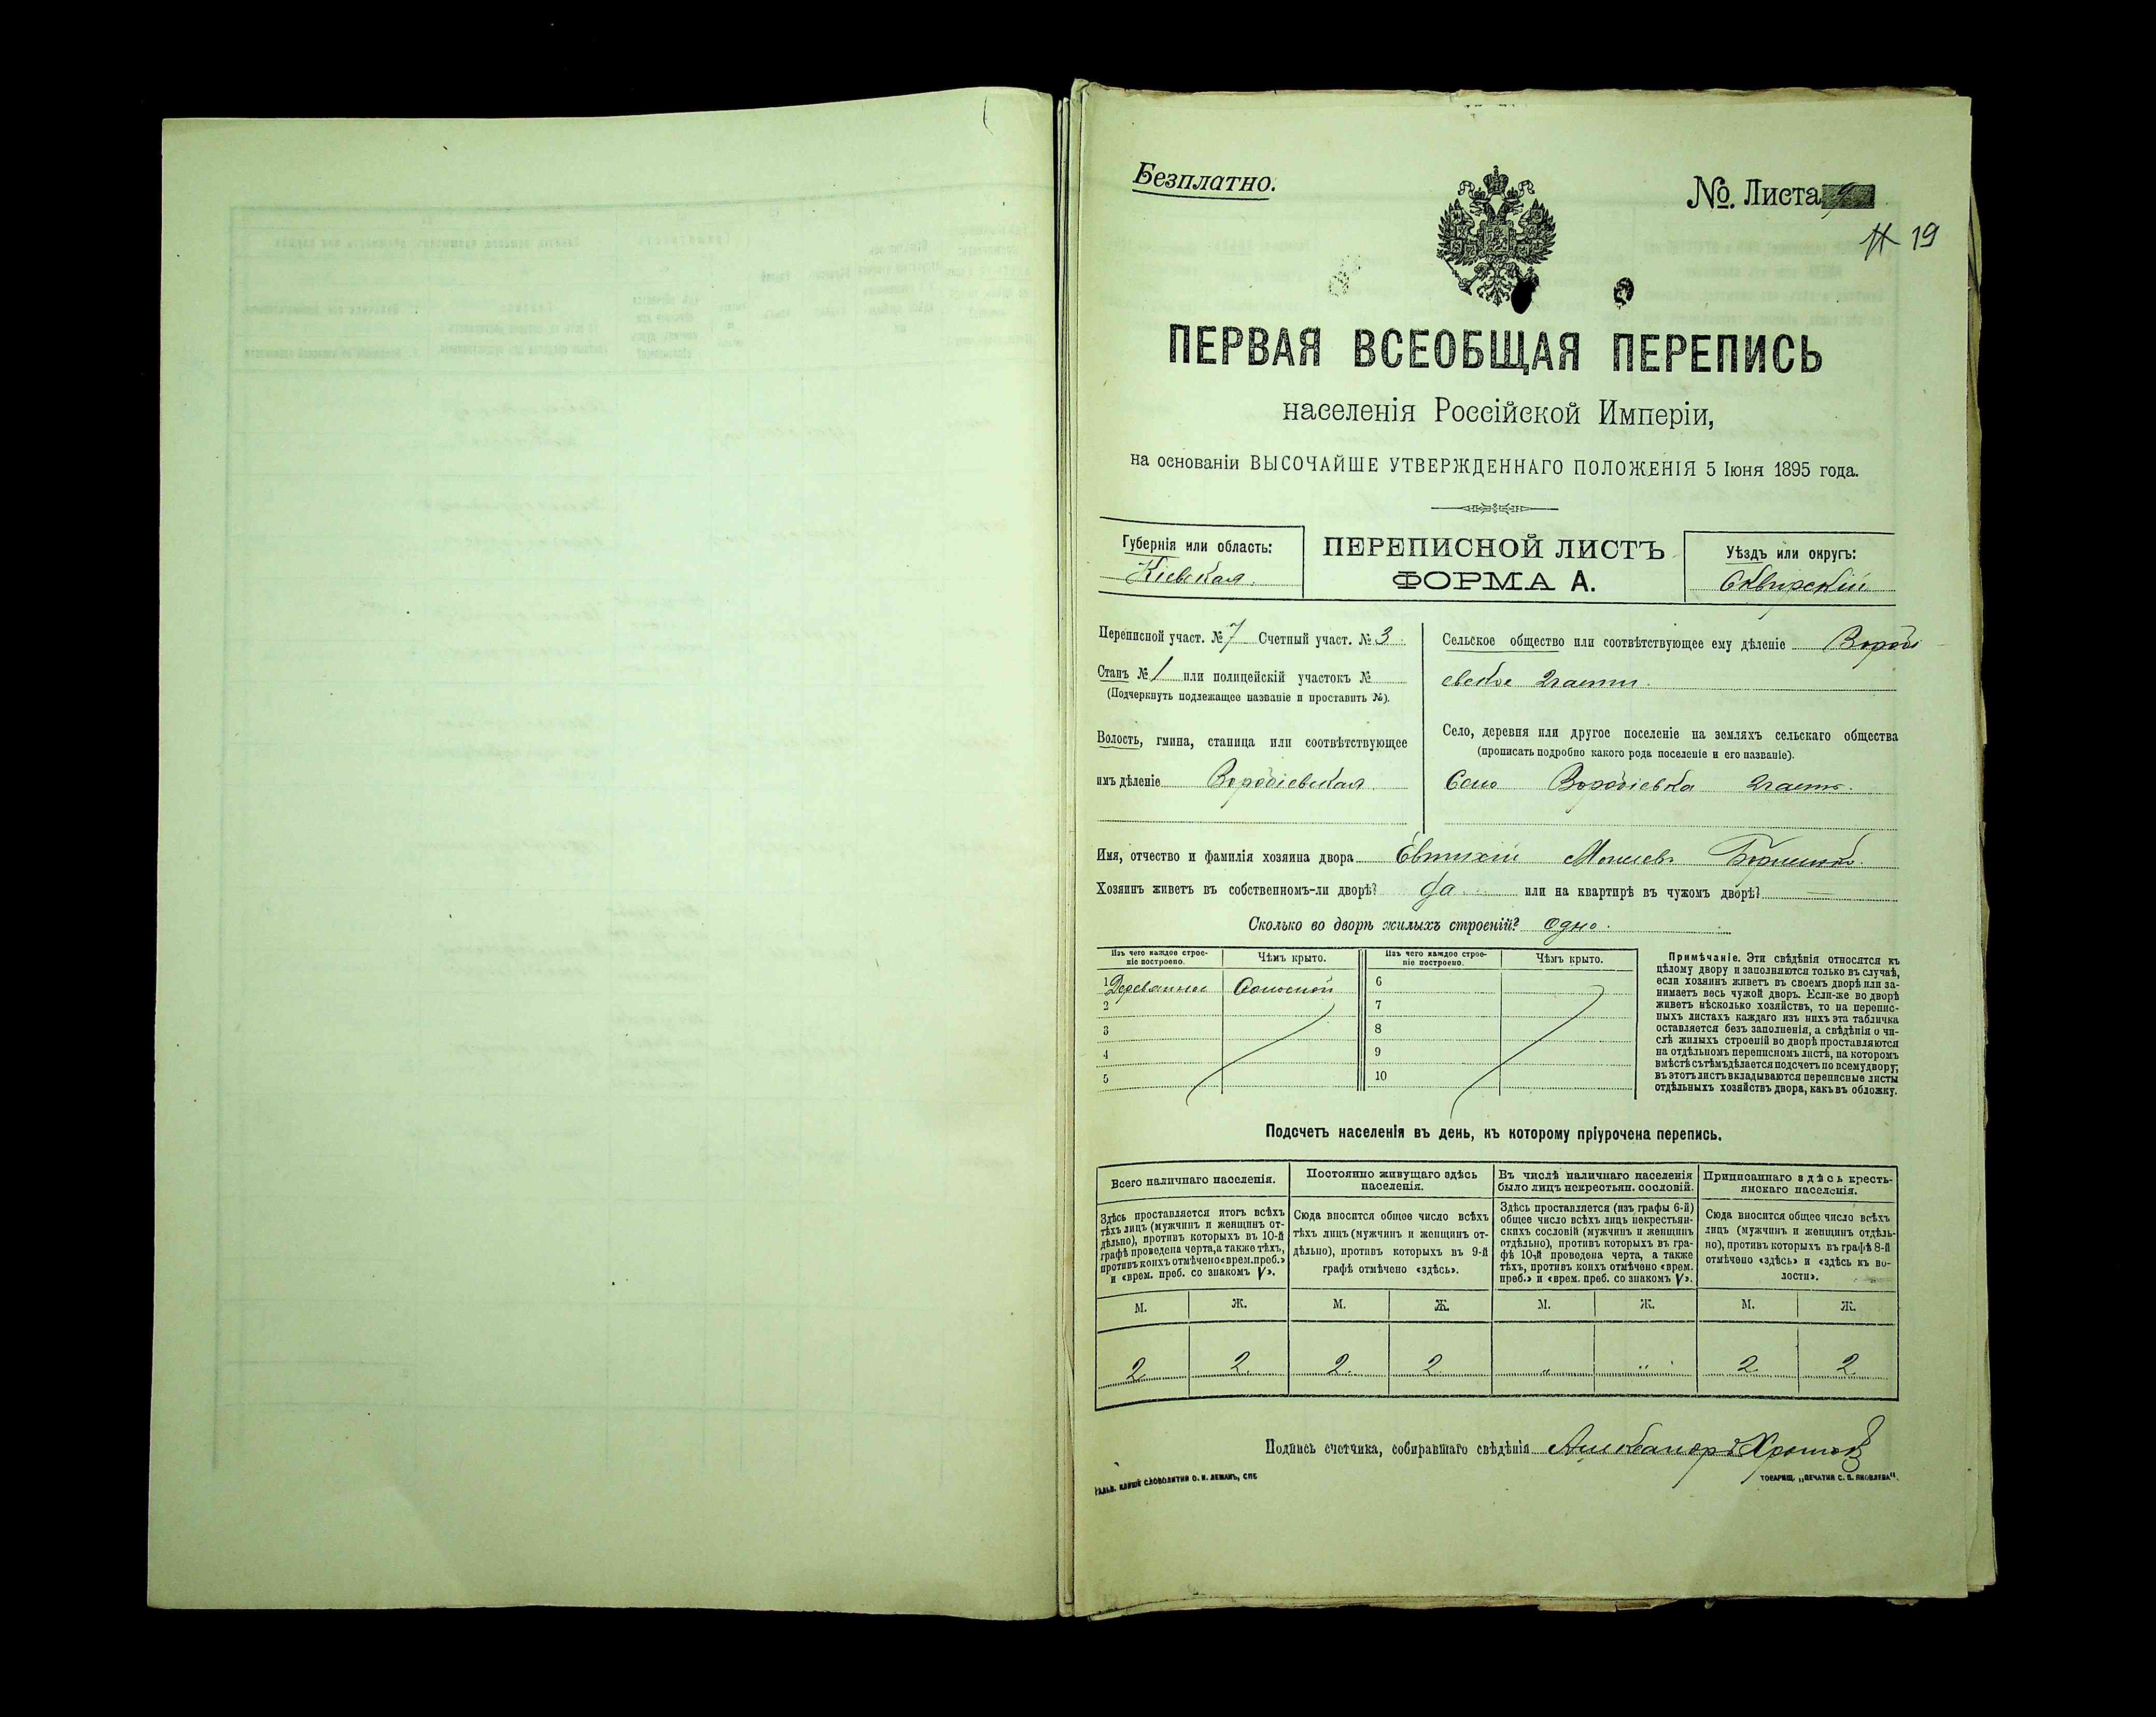 Безплатно.
№. Листа 9
19
ПЕРВАЯ ВСЕОБЩАЯ ПЕРЕПИСЬ
населенія Россійской Имперіи,
на основаніи ВЫСОЧАЙШЕ УТВЕРЖДЕННАГО ПОЛОЖЕНІЯ 5 Іюня 1895 года.
Губернія или область:
Кіевская.
ПЕРЕПИСНОЙ ЛИСТЪ
ФОРМА А.
Уѣздъ или округъ:
Сквирскій
Переписной участ. № 7 Счетный участ. № 3.
Станъ № 1 или полицейскій участокъ №
(Подчеркнуть подлежащее названіе и проставить №).
Волость, гмина, станица или соотвѣтствующее
имъ дѣленіе Воробіевская.
Сельское общество или соотвѣтствующее ему дѣленіе Воробі
евское 2 части.
Село, деревня или другое поселеніе на земляхъ сельскаго общества
(прописать подробно какого рода поселеніе и его названіе).
Село Воробіевка 2 часть.
Имя, отчество и фамилія хозяина двора Евтихій
Хозяинъ живетъ въ собственномъ-ли дворѣ? Да или на квартирѣ въ чужомъ дворѣ? —
Сколько во дворѣ жилыхъ строеній? Одно.
Изъ чего каждое строе-
ніе построено.
Чѣмъ крыто.
Изъ чего каждое строе-
ніе построено.
Чѣмъ крыто.
1 Деревянное Соломой 6
2 7
3 8
4 9
5 10
Примѣчаніе. Эти свѣдѣнія относятся къ
цѣлому двору и заполняются только въ случаѣ,
если хозяинъ живетъ въ своемъ дворѣ или за-
нимаетъ весь чужой дворъ. Если-же во дворѣ
живетъ нѣсколько хозяйствъ, то на перепис-
ныхъ листахъ каждаго изъ нихъ эта табличка
оставляется безъ заполненія, а свѣдѣнія о чи-
слѣ жилыхъ строеній во дворѣ проставляются
на отдѣльномъ переписномъ листѣ, на которомъ
вмѣстѣ съ тѣмъ дѣлается подсчетъ по всему двору;
въ этотъ листъ вкладываются переписные листы
отдѣльныхъ хозяйствъ двора, какъ въ обложку.
Подсчетъ населенія въ день, къ которому пріурочена перепись.
Всего наличнаго населенія.
Здѣсь проставляется итогъ всѣхъ
тѣхъ лицъ (мужчинъ и женщинъ от-
дѣльно), противъ которыхъ въ 10-й
графѣ проведена черта, а также тѣхъ,
противъ коихъ отмѣчено «врем. преб.»
и «врем. преб. со знакомъ V».
Постоянно живущаго здѣсь
населенія.
Сюда вносится общее число всѣхъ
тѣхъ лицъ (мужчинъ и женщинъ от-
дѣльно), противъ которыхъ въ 9-й
графѣ отмѣчено «здѣсь».
Въ числѣ наличнаго населенія
было лицъ некрестьян. сословій.
Здѣсь проставляется (изъ графы 6-й)
общее число всѣхъ лицъ некрестьян-
скихъ сословій (мужчинъ и женщинъ
отдѣльно), противъ которыхъ въ гра-
фѣ 10-й проведена черта, а также
тѣхъ, противъ коихъ отмѣчено «врем.
преб.» и «врем. преб. со знакомъ V».
Приписаннаго здѣсь кресть-
янскаго населенія.
Сюда вносится общее число всѣхъ
лицъ (мужчинъ и женщинъ отдѣль-
но), противъ которыхъ въ графѣ 8-й
отмѣчено «здѣсь» и «здѣсь къ во-
лости».
М. Ж. М. Ж. М. Ж. М. Ж.
2 2. 2. 2 " " 2 2
Подпись счетчика, собиравшаго свѣдѣнія Александръ
ГАЛЬВ. КЛИШЕ СЛОВОЛИТНИ О. И. ЛЕМАНЪ, СПБ.
ТОВАРИЩ. „ПЕЧАТНЯ С. П. ЯКОВЛЕВА".